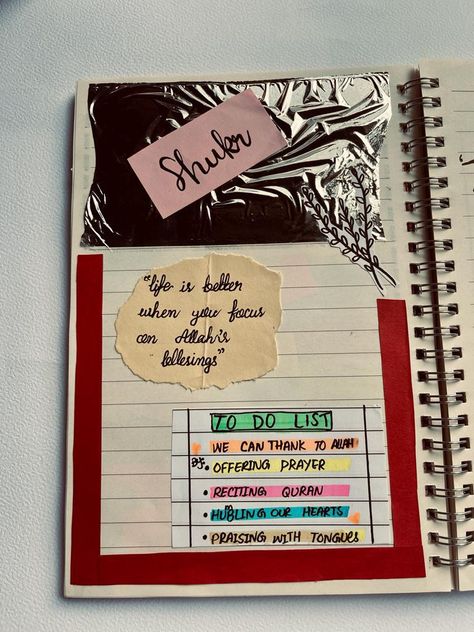 Shukr
"life is better
when you focus
on Allah's
bllesings"
TO DO LIST
WE CAN THANK TO ALLAH
By:
• OFFERING PRAYER
• RECITING QURAN
• HUMBLING OUR HEARTS
• PRAISING WITH TONGUES